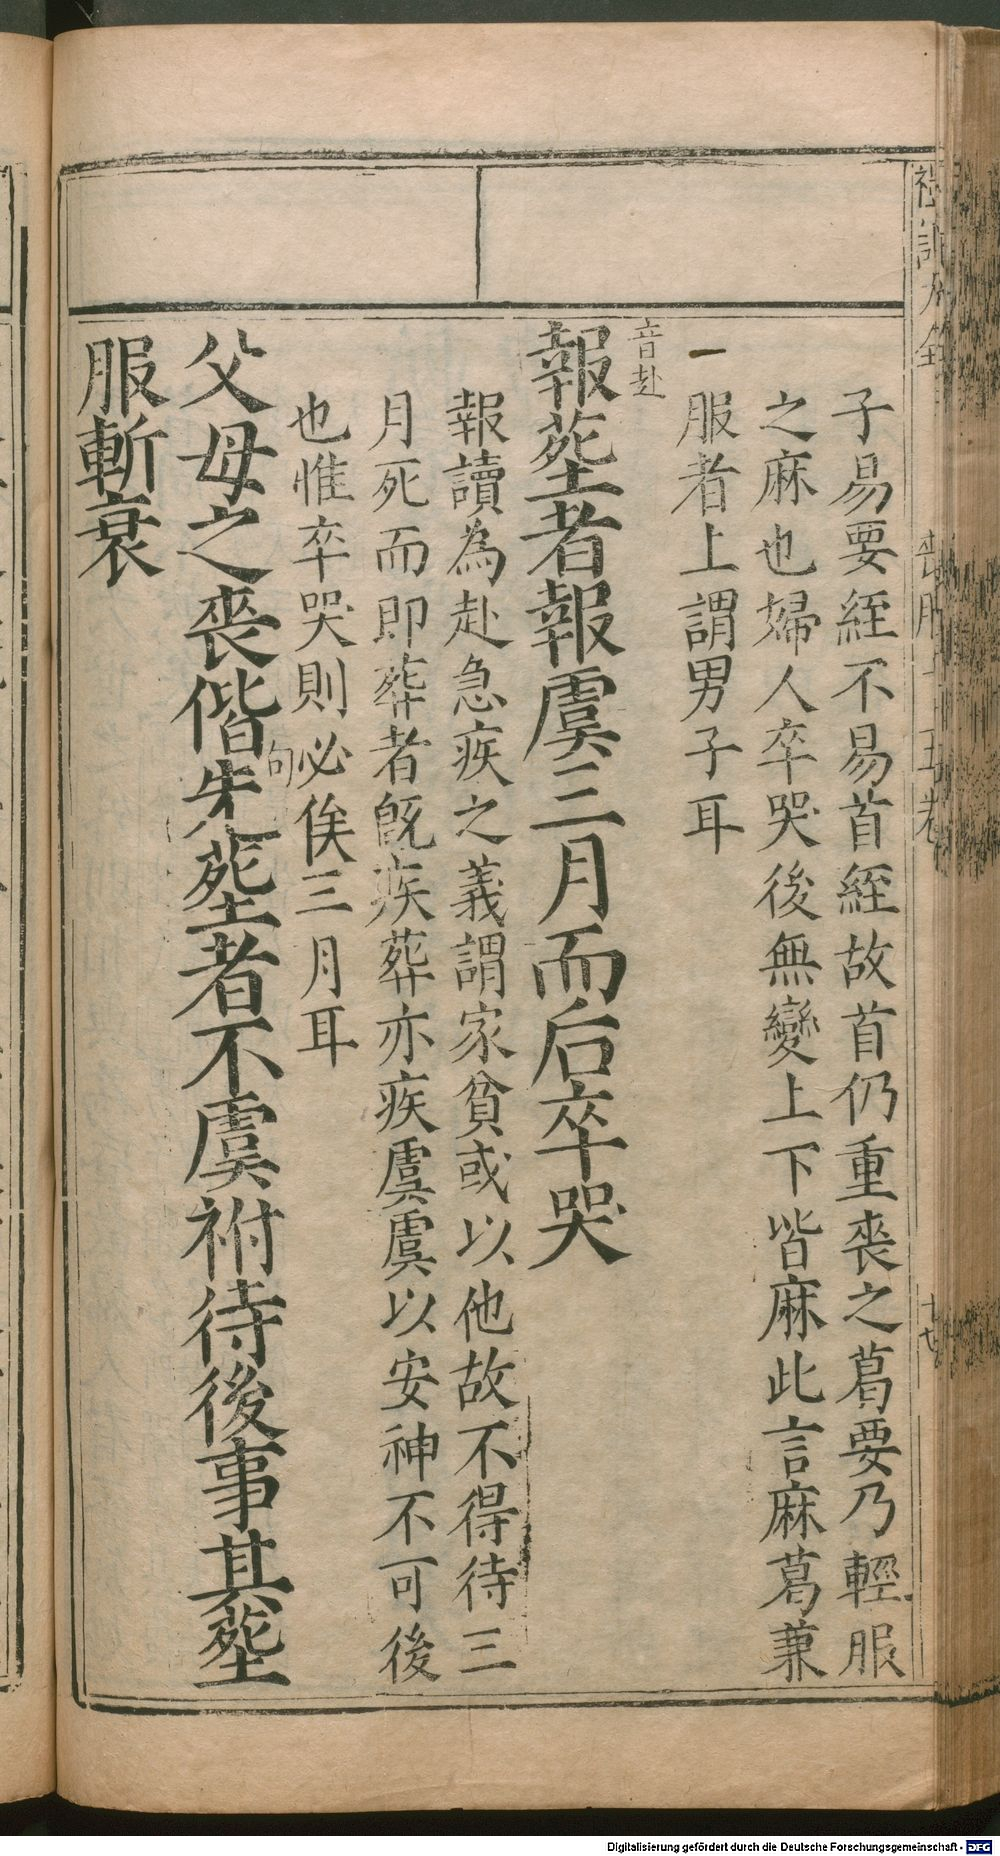 子易要絰不易首絰故首仍重喪之葛要乃輕服
之麻也婦人卒哭後無變上下皆麻此言麻葛兼
服者上謂男子耳
音赴
報塟者報虞三月而后卒哭
報讀為赴急疾之義謂家貧或以他故不得待三
月死而即葬者旣疾葬亦疾虞虞以安神不可後
也惟卒哭則必俟三月耳
父母之喪偕先塟者不虞祔待後事其塟
句
服斬衰
Digitalisierung gefördert durch die Deutsche Forschungsgemeinschaft - DFG